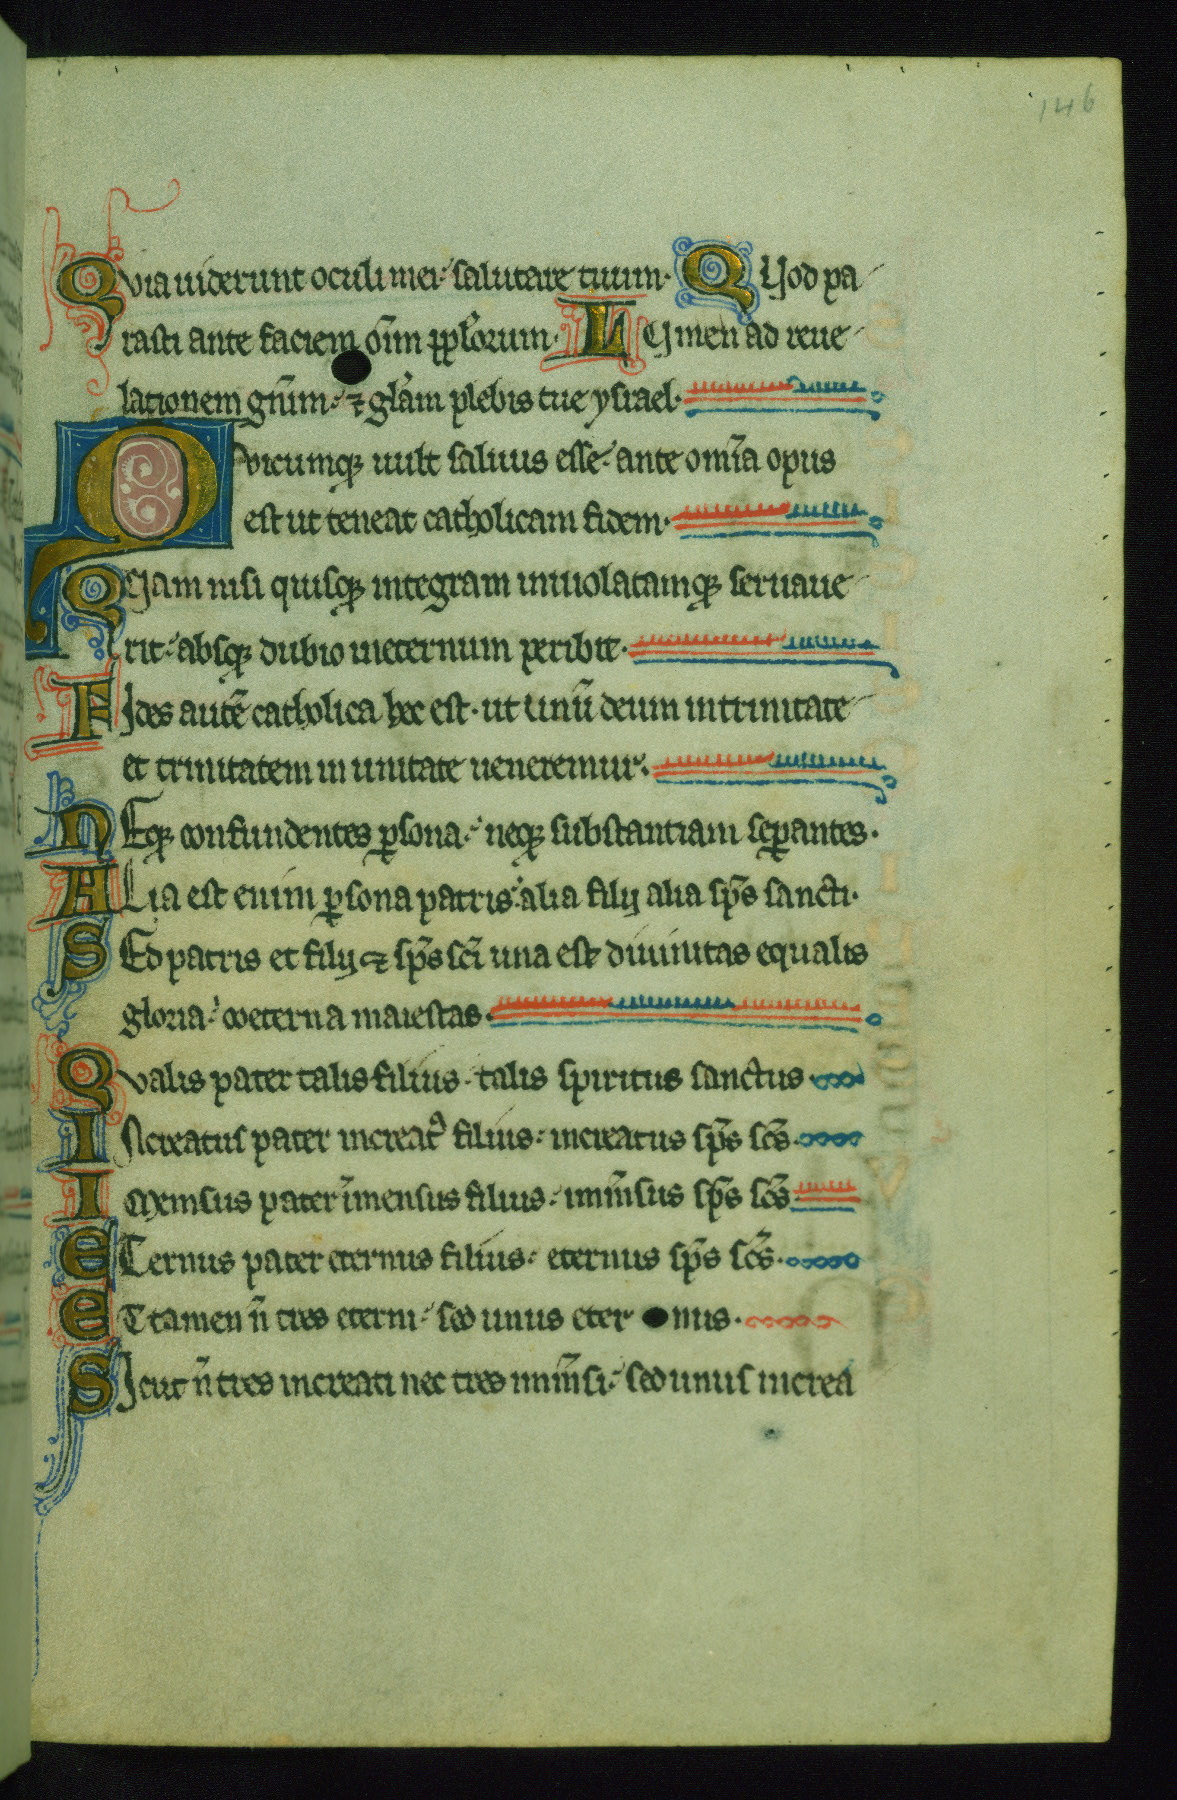 146
Quia uiderunt oculi mei: salutare tuum. Quod pa
rasti ante faciem om̄im pp̄lorum. Lumen ad reue
lationem gn̄im: ⁊ glām plebis tue ysrael.
Quicumqꝫ uult saluus esse: ante omīa opus
est ut teneat catholicam fidem.
Quam nisi quisqꝫ integram inuiolatamqꝫ seruaue
rit: absqꝫ dubio ineternum peribit.
Fides autē catholica hec est. ut unū deum intrinitate
et trinitatem in unitate ueneremur.
Neqꝫ confundentes ꝑsona: neqꝫ substantiam seꝑantes.
Alia est enim ꝑsona patris: alia filij alia sp̄s sancti.
Sed patris et filij ⁊ sp̄s sc̄i una est diuinitas equalis
gloria: coeterna maiestas.
Qualis pater talis filius. talis spiritus sanctus
Increatus pater increatꝰ filius: increatus sp̄s sc̄s.
Inmensus pater īmensus filius: imm̄sus sp̄s sc̄s
Eternus pater eternus filius: eternus sp̄s sc̄s.
Et tamen n̄ tres eterni: sed unus eter nus.
Sicut n̄ tres increati nec tres imm̄si: sed unus increa